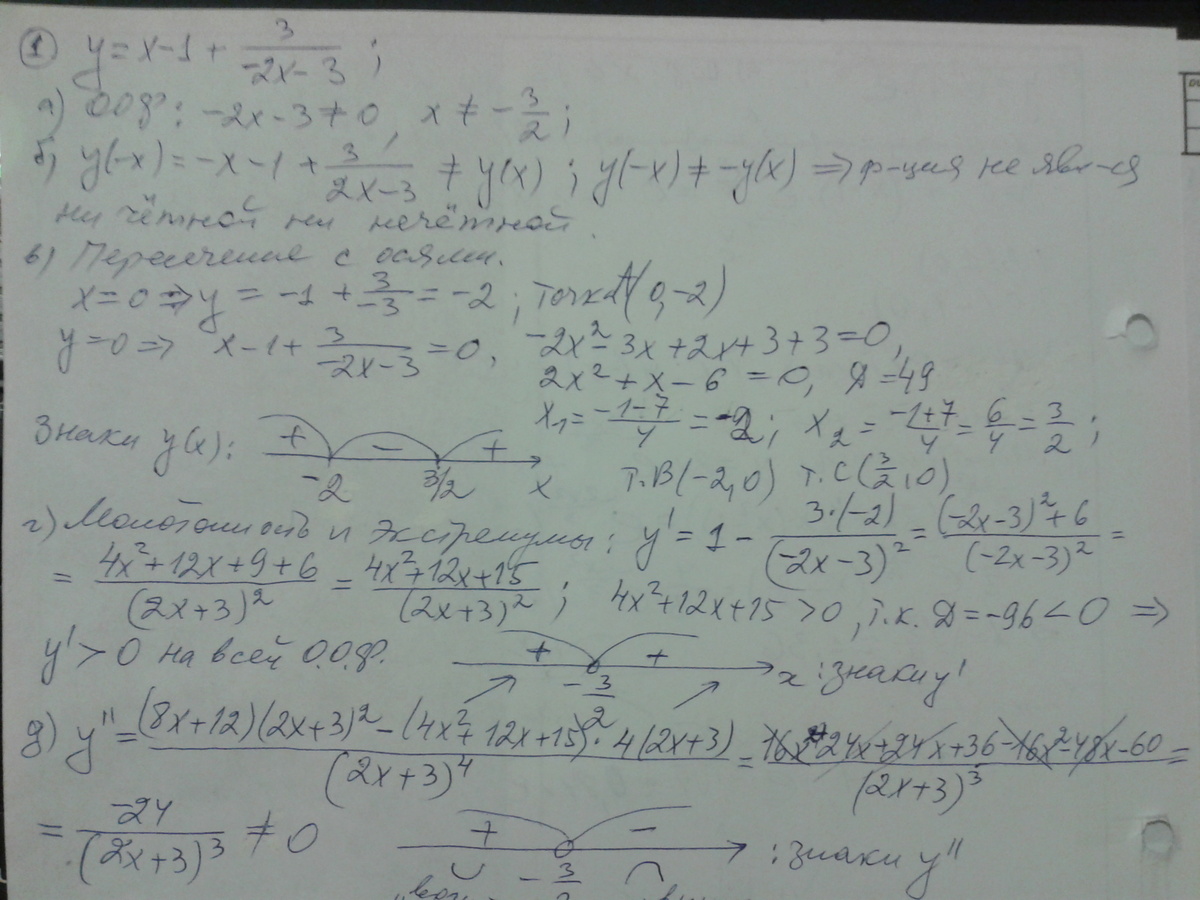 ① y = x-1 + 3/(-2x-3) ;
а) ООФ: -2x-3 ≠ 0, x ≠ -3/2 ;
б) y(-x) = -x-1 + 3/(2x-3) ≠ y(x) ; y(-x) ≠ -y(x) => ф-ция не явл-ся
ни чётной ни нечётной.
в) Пересечение с осями.
x=0 => y = -1 + 3/(-3) = -2 ; точка A(0,-2)
y=0 => x-1 + 3/(-2x-3) = 0, -2x²-3x+2x+3+3=0,
2x²+x-6 = 0, Д=49
x₁ = (-1-7)/4 = -2 ; x₂ = (-1+7)/4 = 6/4 = 3/2 ;
Знаки y(x): + - +
-2 3/2 x
т.B(-2,0) т.C(3/2,0)
г) Монотонность и экстремумы: y' = 1 - 3·(-2)/(-2x-3)² = ((-2x-3)²+6)/(-2x-3)² =
= (4x²+12x+9+6)/(2x+3)² = (4x²+12x+15)/(2x+3)² ; 4x²+12x+15 > 0, т.к. Д=-96<0 =>
y' > 0 на всей О.О.Ф. + + -3/2 x : знаки y'
д) y'' = ((8x+12)(2x+3)² - (4x²+12x+15)·4(2x+3))/(2x+3)⁴ = (16x²+24x+24x+36-16x²-48x-60)/(2x+3)³ =
= -24/(2x+3)³ ≠ 0 + - -3/2 : знаки y''